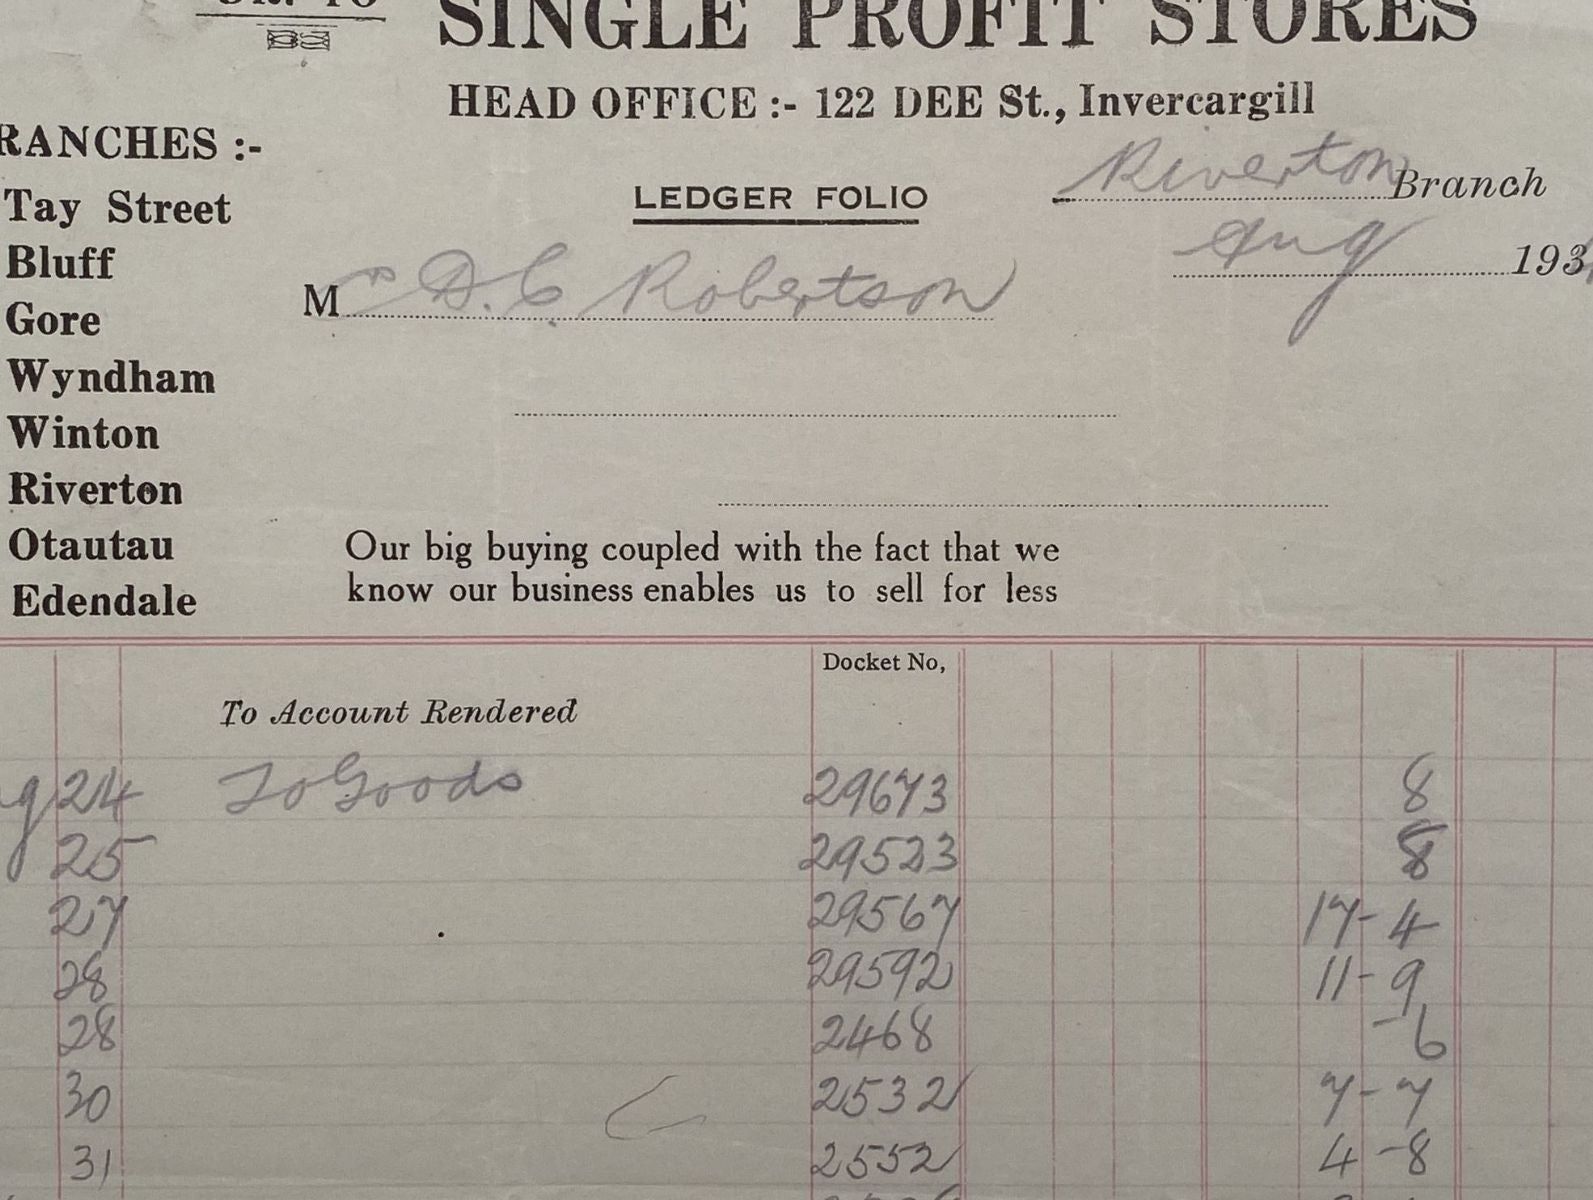 SINGLE PROFIT STORES
HEAD OFFICE :- 122 DEE St., Invercargill
RANCHES :-
Tay Street
Bluff
Gore
Wyndham
Winton
Riverton
Otautau
Edendale
LEDGER FOLIO
Riverton Branch
Aug 193
Mr D. C. Robertson
Our big buying coupled with the fact that we
know our business enables us to sell for less
Docket No,
To Account Rendered
g 24 To Goods 29673 8
25 29523 8
27 29567 17-4
28 29592 11-9
28 2468 -6
30 2532 7-7
31 2552 4-8